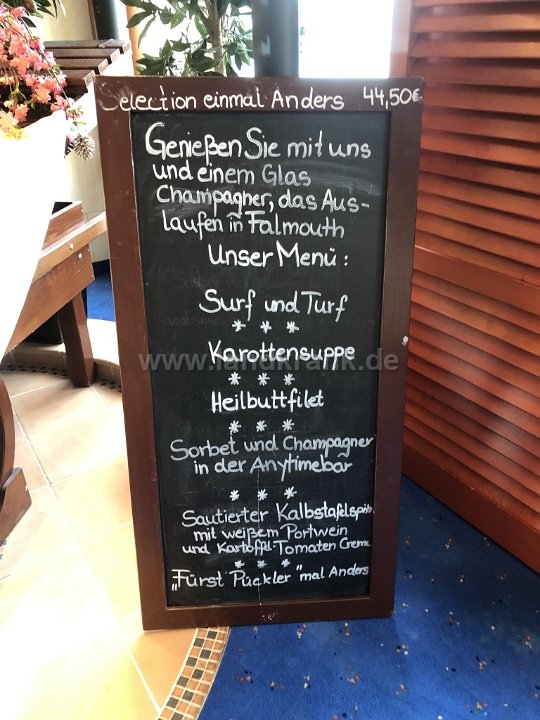 Selection einmal Anders 44,50€
Genießen Sie mit uns
und einem Glas
Champagner, das Aus-
laufen in Falmouth
Unser Menü:
Surf und Turf
* * *
Karottensuppe
www.landkrank.de
* * *
Heilbuttfilet
* * *
Sorbet und Champagner
in der Anytimebar
* * *
Sautierter Kalbstafelspitz
mit weißem Portwein
und Kartoffel-Tomaten Creme
* * *
„Fürst Pückler" mal Anders